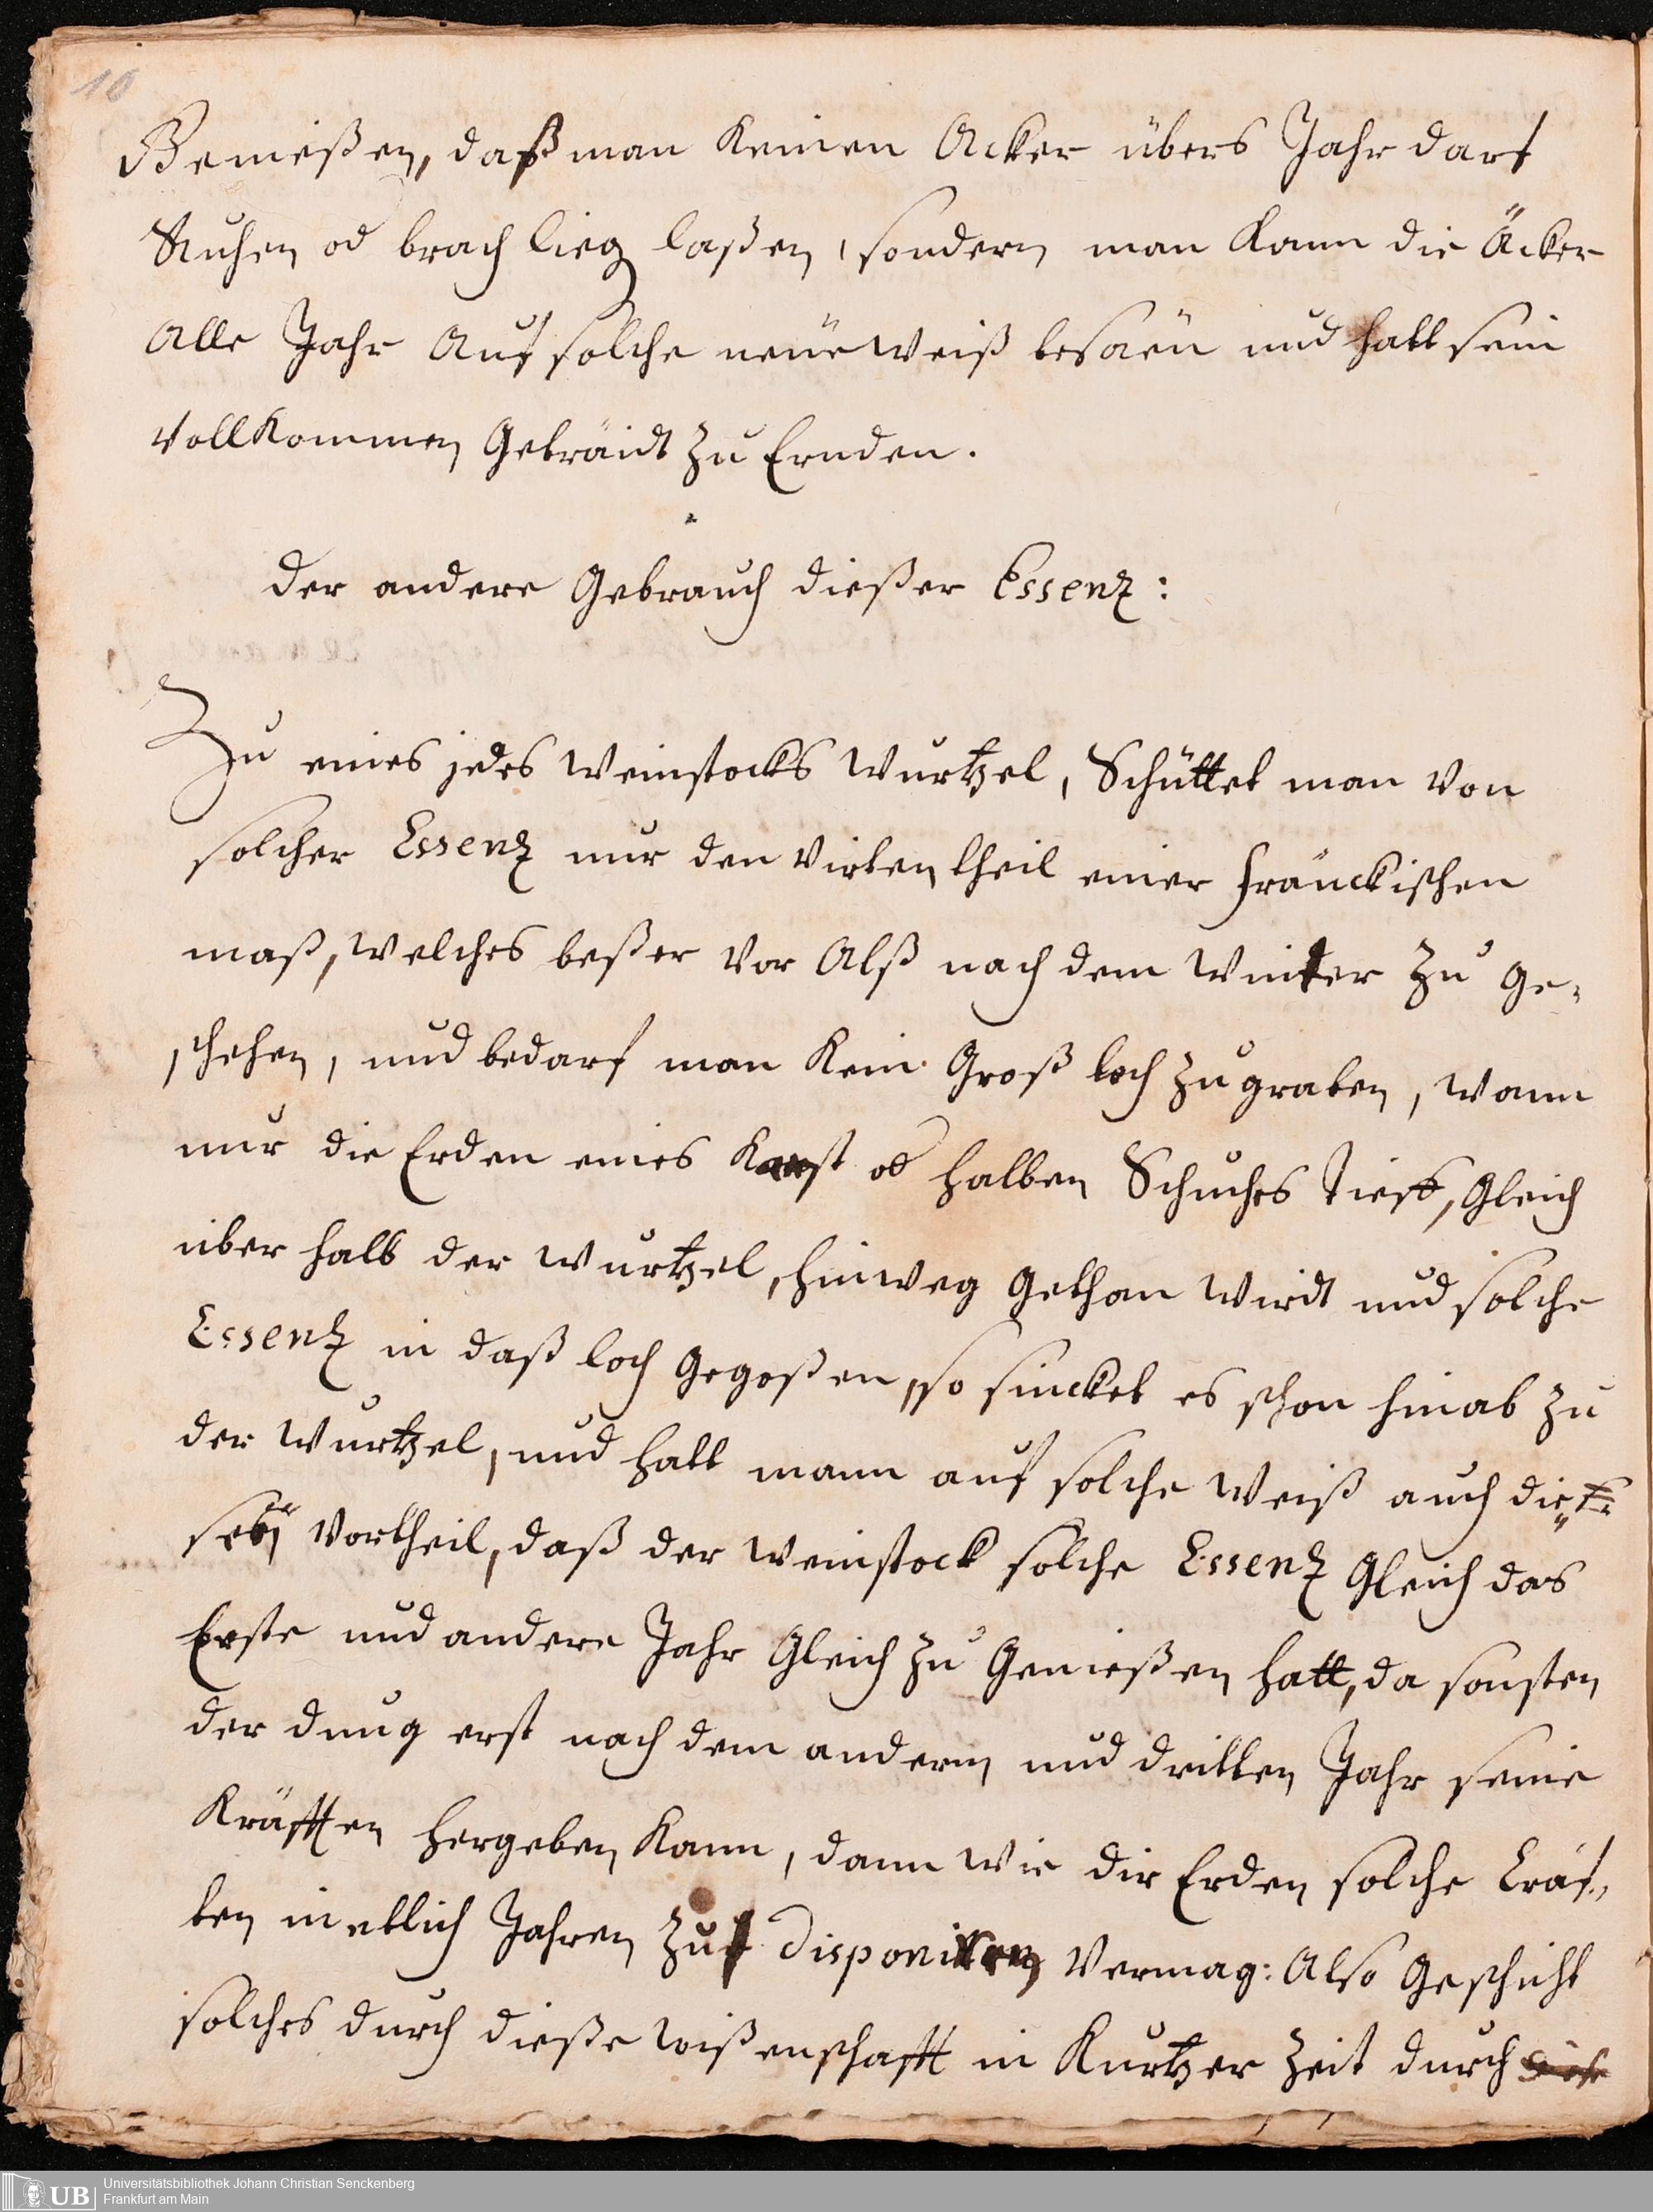 10
Bemeißen, daß man keinen Acker übers Jahr darf
Ruhen od brach lieg laßen, sondern man kann die Äcker
Alle Jahr Auf solche neüe weiß besaen und hatt sein
vollkommen Geträidt zu Ernden.
der andere Gebrauch dießer Essenz:
Zu eines jedes Weinstocks Wurtzel, Schüttet man von
solcher Essenz nur den Virten theil einer fränckischen
maß, welches beßer vor Alß nach dem Winter zu ge-
schehen, und bedarf man kein Groß loch zu graben, wann
nur die Erden eines Karst od halben Schuhes Tieff, Gleich
über halb der wurtzel, hinweg Gethan wirdt und solche
Essenz in daß loch Gegoßen, so sincket es schon hinab zu
der Wurtzel, und hatt mann auf solche Weiß auch die-
Vortheil, daß der Weinstock solche Essenz Gleich das
Erste und andere Jahr Gleich zu Genießen hatt, da sonsten
der dung erst nach dem andern und dritten Jahr seine
Kräfften hergeben kann, dann wie die Erden solche Cräf-
ten in etlich Jahren zu disponiren Vermag: Also Geschicht
solches durch dieße wißenschafft in Kurtzer Zeit durch
UB Universitätsbibliothek Johann Christian Senckenberg
Frankfurt am Main